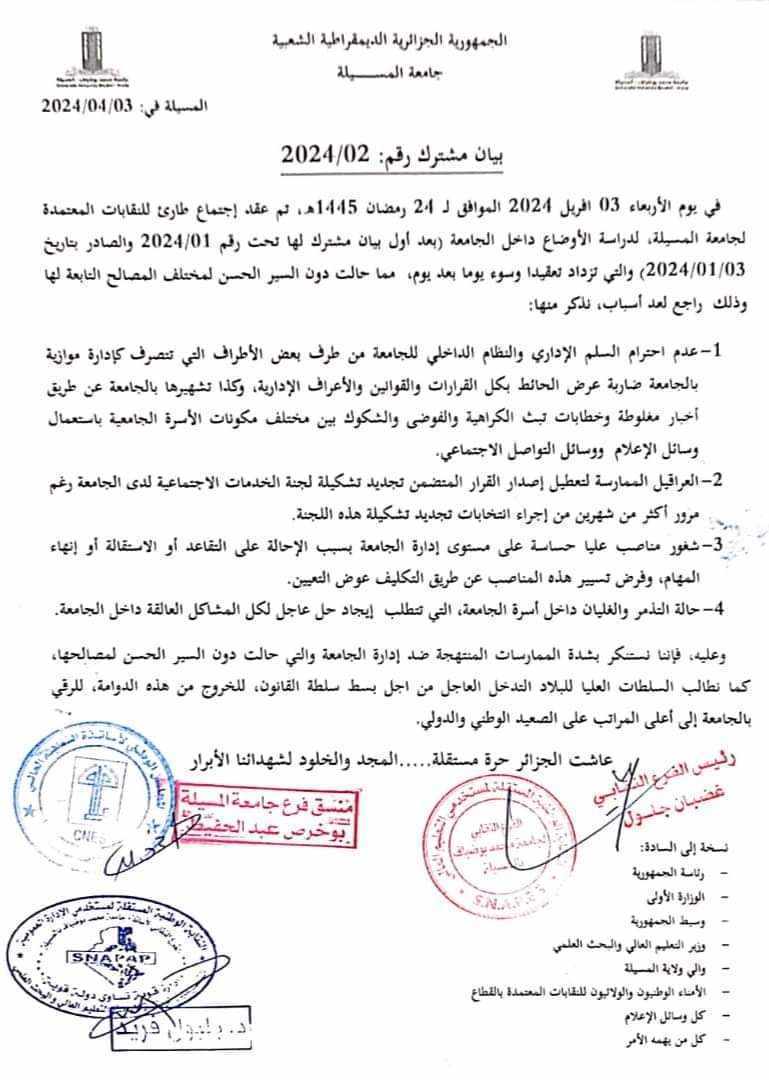 الجمهورية الجزائرية الديمقراطية الشعبية
جامعة المسيلة
المسيلة في: 2024/04/03
بيان مشترك رقم: 2024/02
في يوم الأربعاء 03 افريل 2024 الموافق لـ 24 رمضان 1445هـ، تم عقد إجتماع طارئ للنقابات المعتمدة
لجامعة المسيلة، لدراسة الأوضاع داخل الجامعة (بعد أول بيان مشترك لها تحت رقم 2024/01 والصادر بتاريخ
2024/01/03) والتي تزداد تعقيدا وسوء يوما بعد يوم، مما حالت دون السير الحسن لمختلف المصالح التابعة لها
وذلك راجع لعد أسباب، نذكر منها:
1- عدم احترام السلم الإداري والنظام الداخلي للجامعة من طرف بعض الأطراف التي تتصرف كإدارة موازية
بالجامعة ضاربة عرض الحائط بكل القرارات والقوانين والأعراف الإدارية، وكذا تشهيرها بالجامعة عن طريق
أخبار مغلوطة وخطابات تبث الكراهية والفوضى والشكوك بين مختلف مكونات الأسرة الجامعية باستعمال
وسائل الإعلام ووسائل التواصل الاجتماعي.
2- العراقيل الممارسة لتعطيل إصدار القرار المتضمن تجديد تشكيلة لجنة الخدمات الاجتماعية لدى الجامعة رغم
مرور أكثر من شهرين من إجراء انتخابات تجديد تشكيلة هذه اللجنة.
3- شغور مناصب عليا حساسة على مستوى إدارة الجامعة بسبب الإحالة على التقاعد أو الاستقالة أو إنهاء
المهام، وفرض تسيير هذه المناصب عن طريق التكليف عوض التعيين.
4- حالة التذمر والغليان داخل أسرة الجامعة، التي تتطلب إيجاد حل عاجل لكل المشاكل العالقة داخل الجامعة.
وعليه، فإننا نستنكر بشدة الممارسات المنتهجة ضد إدارة الجامعة والتي حالت دون السير الحسن لمصالحها،
كما نطالب السلطات العليا للبلاد التدخل العاجل من اجل بسط سلطة القانون، للخروج من هذه الدوامة، للرقي
بالجامعة إلى أعلى المراتب على الصعيد الوطني والدولي.
عاشت الجزائر حرة مستقلة.....المجد والخلود لشهدائنا الأبرار
رئيس الفرع النقابي
غضبان جلول
S.N.A.P.E.S
منسق فرع جامعة المسيلة
بوخرص عبد الحفيظ
المجلس الوطني لأساتذة التعليم العالي
CNES
نسخة إلى السادة:
– رئاسة الجمهورية
– الوزارة الأولى
– وسيط الجمهورية
– وزير التعليم العالي والبحث العلمي
– والي ولاية المسيلة
– الأمناء الوطنيون والولائيون للنقابات المعتمدة بالقطاع
– كل وسائل الإعلام
– كل من يهمه الأمر
النقابة الوطنية المستقلة لمستخدمي الإدارة العمومية
SNAPAP
فريد